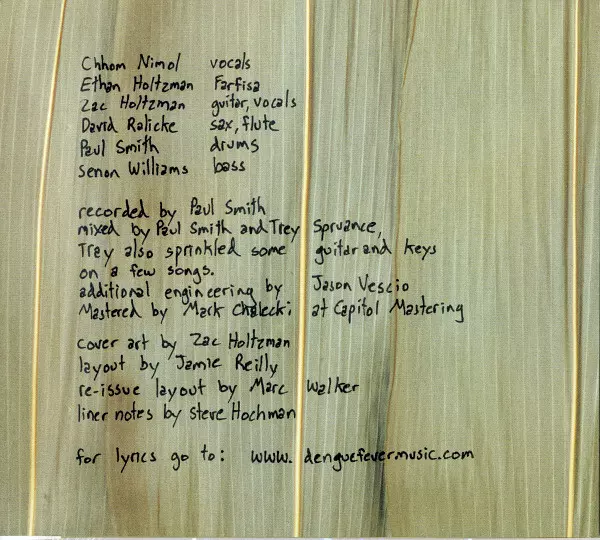 Chhom Nimol vocals
Ethan Holtzman Farfisa
Zac Holtzman guitar, vocals
David Ralicke sax, flute
Paul Smith drums
Senon Williams bass
recorded by Paul Smith
mixed by Paul Smith and Trey Spruance,
Trey also sprinkled some guitar and keys
on a few songs.
additional engineering by Jason Vescio
Mastered by Mark Chalecki at Capitol Mastering
cover art by Zac Holtzman
layout by Jamie Reilly
re-issue layout by Marc Walker
liner notes by Steve Hochman
for lyrics go to: www.denguefevermusic.com